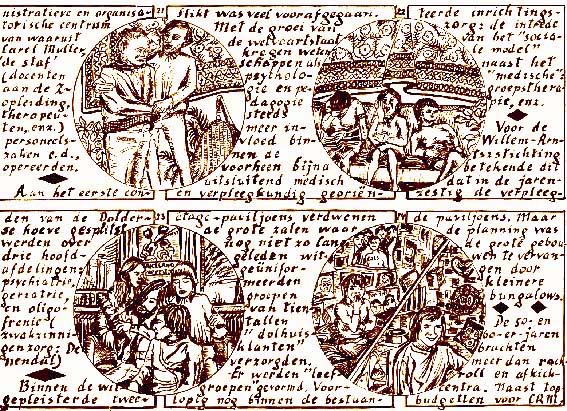 nistratieve en organisa-
torische centrum
van waaruit
Carel Muller,
de staf
(docenten
aan de Z-
opleiding,
therapeu-
ten, enz.)
personeels-
zaken e.d.,
opereerden.
Aan het eerste con-
21
flikt was veel voorafgegaan.
Met de groei van
de welvaartstaat
kregen weten-
schappen als
psycholo-
gie en pe-
dagogie
steeds
meer in-
vloed bin-
nen de
voorheen bijna
uitsluitend medisch
en verpleegkundig georiën-
22
teerde inrichtings-
zorg: de intrede
van het "socia-
le model"
naast het
"medische":
groepsthera-
pie, enz.
Voor de
Willem-Arn-
tszstichting
betekende dit
dat in de jaren-
zestig de verpleeg-
den van de Dolder-
se hoeve gesplitst
werden over
drie hoofd-
afdelingen:
psychiatrie,
geriatrie,
en oligo-
frenie (
zwakzinni-
genzorg: De
hendal)
Binnen de wit
gepleisterde twee-
23
etage-paviljoens verdwenen
de grote zalen waar
nog niet zo lang
geleden wit-
geünifor-
meerden
groepen
van tien-
tallen
"dolhuis-
klanten"
verzorgden.
Er werden "leef-
groepen" gevormd. Voor-
lopig nog binnen de bestaan-
24
de paviljoens. Maar
de planning was
de grote gebou-
wen te vervan-
gen door
kleinere
bungalows.
De 50- en
60-er-jaren
brachten
meer dan rock-
roll en afkick-
centra. Naast top
budgetten voor CRM,